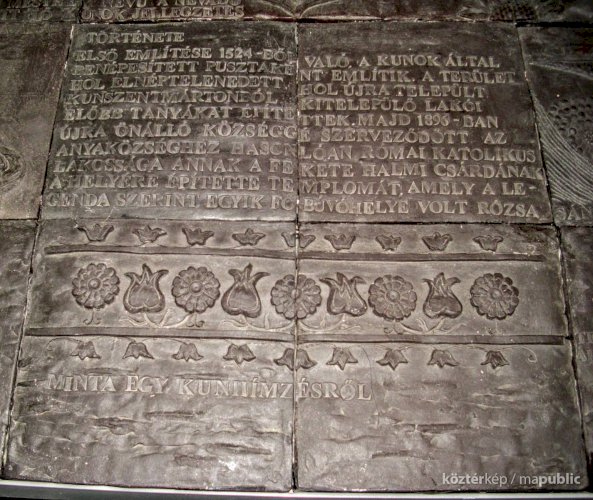 NEVŰ A NEVA
KOK JELLEGZETES
TÖRTÉNETE
ELSŐ EMLÍTÉSE 1524-BŐL VALÓ, A KUNOK ÁLTAL
BENÉPESÍTETT PUSZTAKÉNT EMLÍTIK. A TERÜLET
HOL ELNÉPTELENEDETT HOL ÚJRA TELEPÜLT
KUNSZENTMÁRTONBÓL KITELEPÜLŐ LAKÓI
ELŐBB TANYÁKAT ÉPÍTETTEK, MAJD 1896-BAN
ÚJRA ÖNÁLLÓ KÖZSÉGGÉ SZERVEZŐDÖTT AZ
ANYAKÖZSÉGHEZ HASONLÓAN RÓMAI KATOLIKUS
LAKOSSÁGA ANNAK A FEKETE HALMI CSÁRDÁNAK
A HELYÉRE ÉPÍTETTE TEMPLOMÁT, AMELY A LE-
GENDA SZERINT EGYIK FŐ BÚVÓHELYE VOLT RÓZSA
MINTA EGY KUNHÍMZÉSRŐL
köztérkép / mapublic